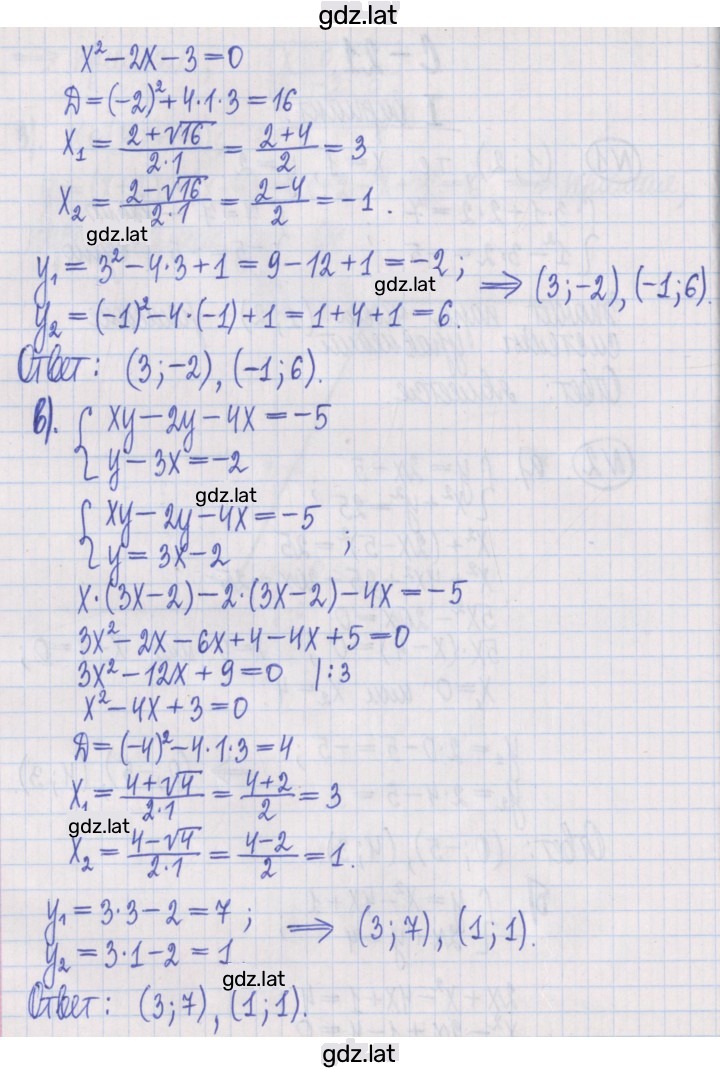 gdz.lat
x² − 2x − 3 = 0
D = (−2)² + 4·1·3 = 16
x₁ = (2+√16)/(2·1) = (2+4)/2 = 3
x₂ = (2−√16)/(2·1) = (2−4)/2 = −1.
gdz.lat
y₁ = 3² − 4·3 + 1 = 9 − 12 + 1 = −2; ⟹ (3; −2), (−1; 6).
gdz.lat
y₂ = (−1)² − 4·(−1) + 1 = 1 + 4 + 1 = 6.
Ответ: (3; −2), (−1; 6).
в). { xy − 2y − 4x = −5
y − 3x = −2
gdz.lat
{ xy − 2y − 4x = −5
y = 3x − 2 ;
x·(3x−2) − 2·(3x−2) − 4x = −5
3x² − 2x − 6x + 4 − 4x + 5 = 0
3x² − 12x + 9 = 0 |:3
x² − 4x + 3 = 0
D = (−4)² − 4·1·3 = 4
x₁ = (4+√4)/(2·1) = (4+2)/2 = 3
gdz.lat
x₂ = (4−√4)/(2·1) = (4−2)/2 = 1.
y₁ = 3·3 − 2 = 7; ⟹ (3; 7), (1; 1).
y₂ = 3·1 − 2 = 1.
gdz.lat
Ответ: (3; 7), (1; 1).
gdz.lat